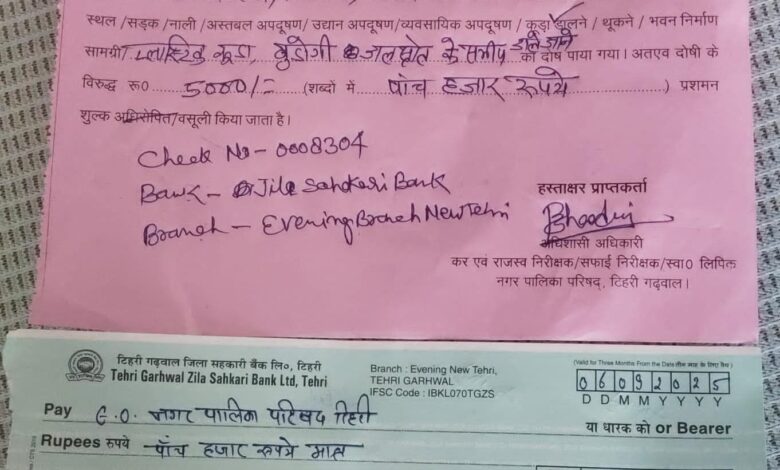 स्थल /सड़क /नाली /अस्तबल अपदूषण/ उद्यान अपदूषण/व्यवसायिक अपदूषण / कूडा डालने / थूकने / भवन निर्माण
सामग्री प्लास्टिक कूडा, बुडोगी जलस्रोत के समीप डाले जाने का दोष पाया गया। अतएव दोषी के
विरुद्ध रू0 5000/= (शब्दों में पांच हजार रूपये) प्रशमन
शुल्क अधिरोपित/वसूली किया जाता है।
Check No - 0008304
Bank - Jila Sahkari Bank
Branch - Evening Branch New Tehri
हस्ताक्षर प्राप्तकर्ता
अधिशासी अधिकारी
कर एवं राजस्व निरीक्षक/सफाई निरीक्षक/स्वा0 लिपिक
नगर पालिका परिषद्, टिहरी गढ़वाल।
टिहरी गढ़वाल जिला सहकारी बैंक लि०, टिहरी
Tehri Garhwal Zila Sahkari Bank Ltd, Tehri
Branch : Evening New Tehri,
TEHRI GARHWAL
IFSC Code : IBKL070TGZS
(Valid for Three Months From the Date/तीन माह के लिए वैध)
06092025
D D M M Y Y Y Y
Pay E.O. नगर पालिका परिषद टिहरी
या धारक को or Bearer
Rupees रुपये पाँच हजार रुपये मात्र